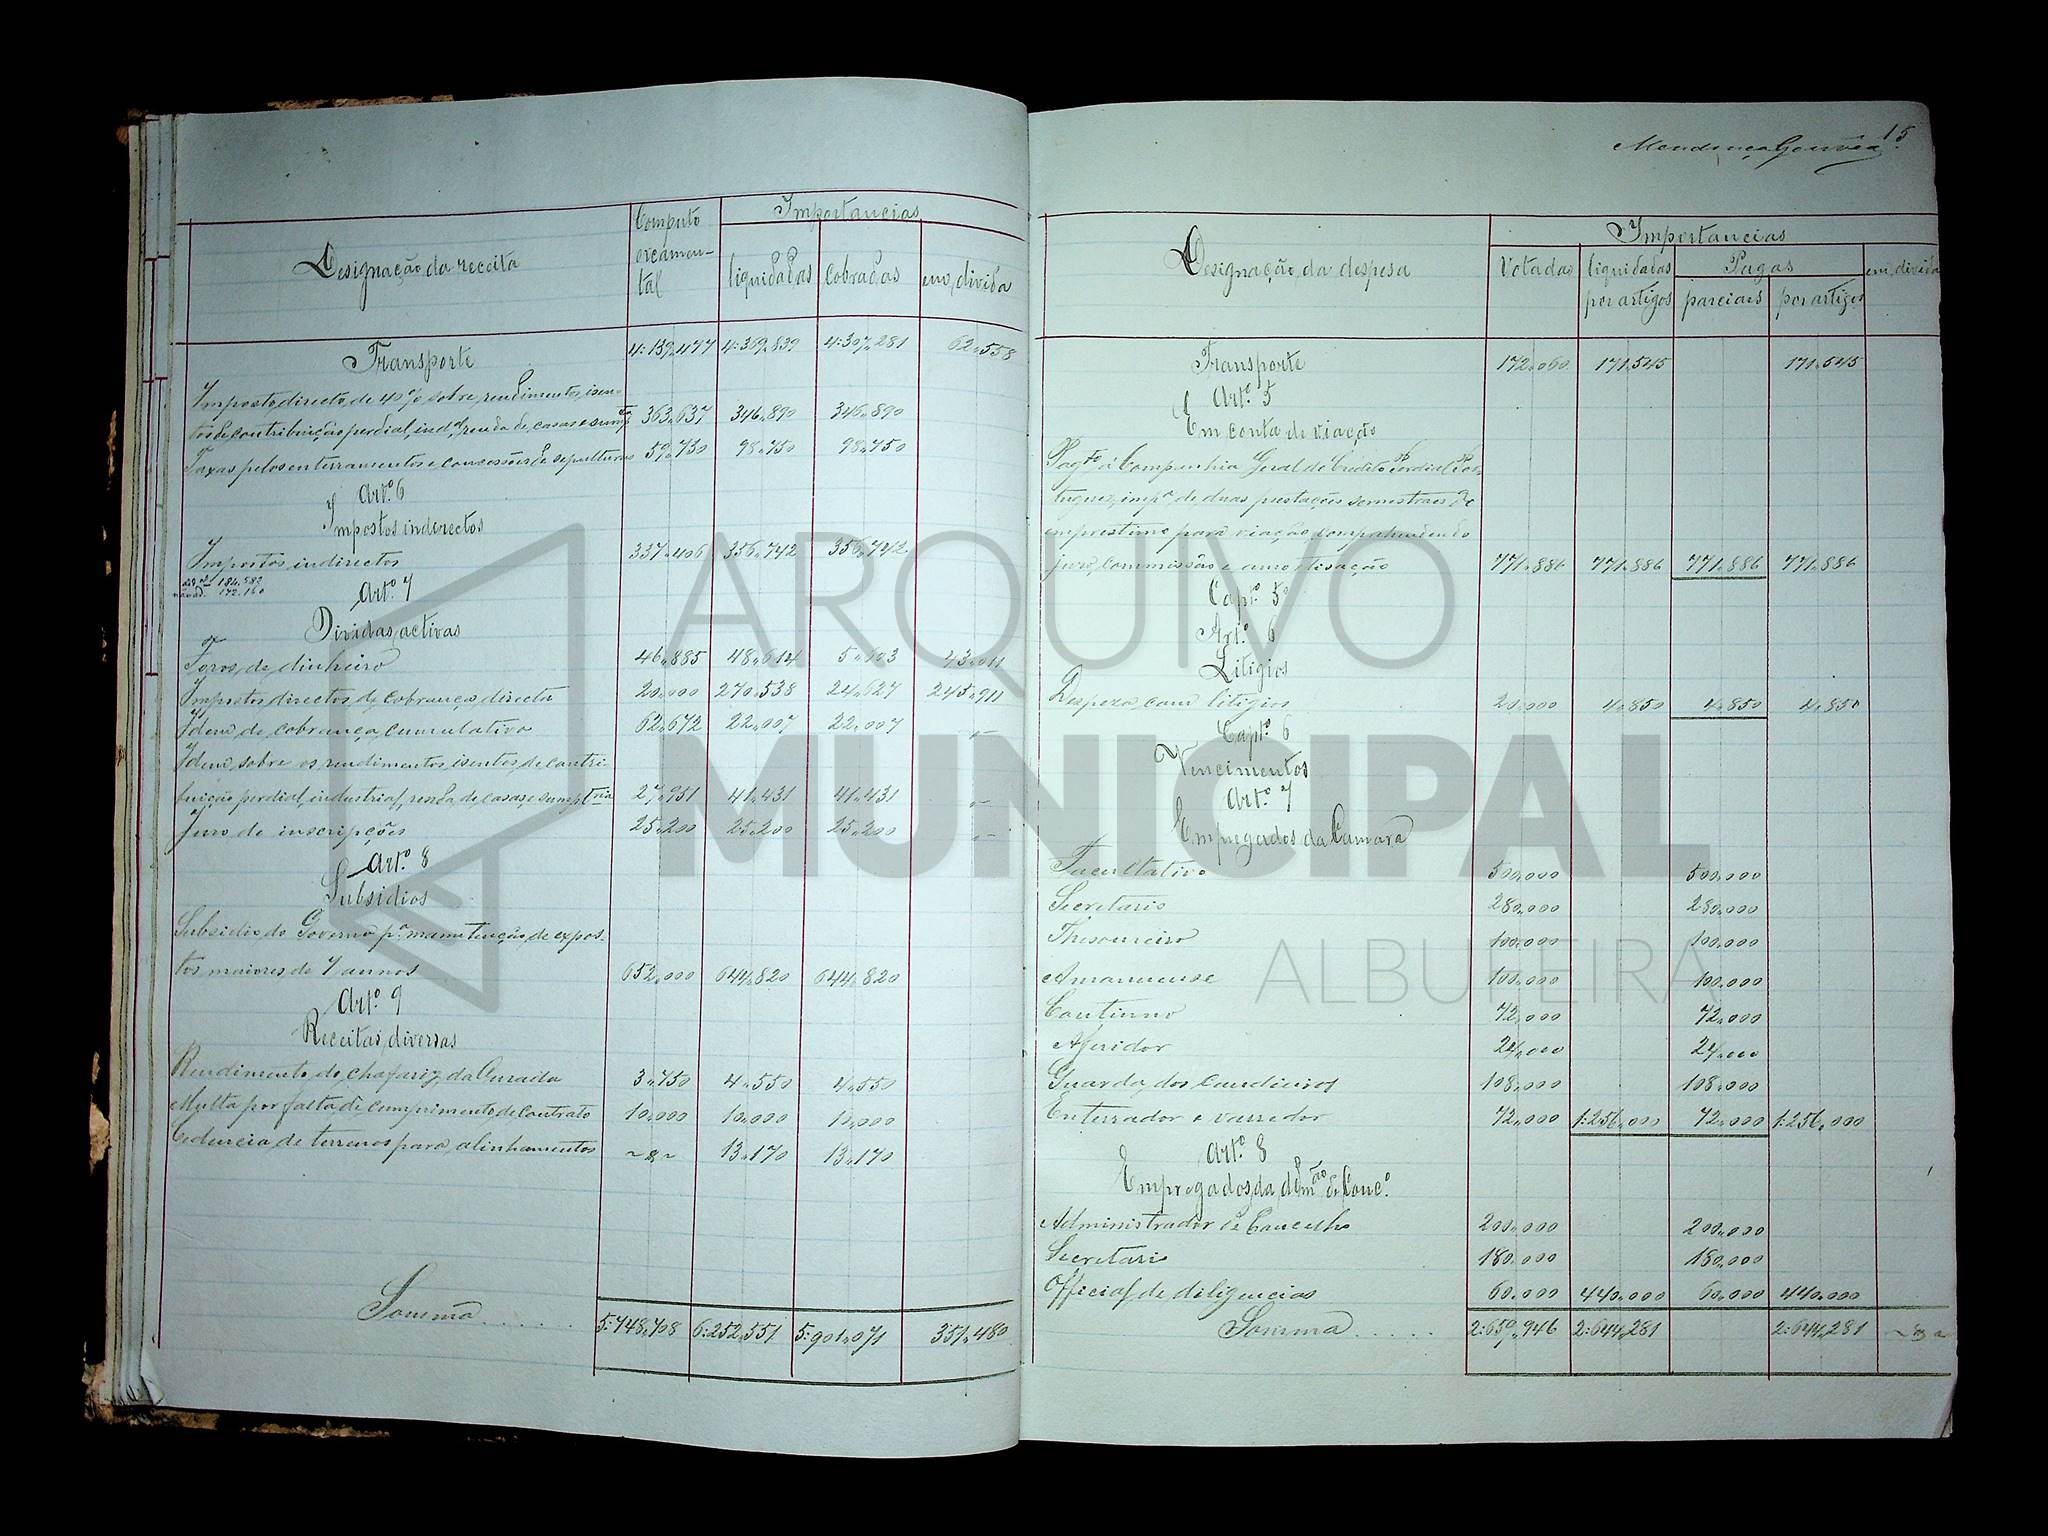 Designação da receita
Computo orçamental
Importancias
liquidadas cobradas em divida
Transporte 4:139,477 4:369,839 4:307,281 62,558
Imposto directo de 40% sobre rendimentos isen-
tos de contribuição perdial, ind.al, renda de casas e sumpt.ria 363,637 346,890 346,890
Taxas pelos enterramentos e concessões de sepulturas 59,730 98,750 98,750
Art.º 6
Impostos indirectos
Impostos indirectos 337,406 356,742 356,742
184,582
172,160
Art.º 7
Dividas activas
Foros de dinheiro 46,885 48,614 5,603 43,011
Impostos directos de cobrança directa 20,000 270,538 24,627 245,911
Idem de cobrança cumulativa 62,672 22,007 22,007 -"-
Idem sobre os rendimentos isentos de contri-
buição perdial, industrial, renda de casas e sumpt.ria 27,951 41,431 41,431 -"-
Juro de inscripções 25,200 25,200 25,200 -"-
Art.º 8
Subsidios
Subsidio do Governo p.ª manutenção de expos-
tos maiores de 7 annos 652,000 644,820 644,820
Art.º 9
Receitas diversas
Rendimento do chafariz da Orada 3,750 4,550 4,550
Multa por falta de cumprimento de contrato 10,000 10,000 10,000
Cedencia de terrenos para alinhamentos ~$~ 13,170 13,170
Somma...... 5:748,708 6:252,551 5:901,071 351,480
15
Mendonça Gouvêa
Designação da despesa
Importancias
Votadas liquidadas por artigos
Pagas
parciaes por artigos
em divida
Transporte 172,060 171,545 171,545
Art.º 5
Em conta de viação
Pag.to á Companhia Geral de Credito Perdial Por-
tuguez, imp.ª de duas prestações semestraes de
emprestimo para viação comprehendendo
juro, commissão e amortisação 771,886 771,886 771,886 771,886
Capt.º 5º
Art.º 6
Litigios
Despeza com litigios 20,000 4,850 4,850 4,850
Capt.º 6
Vencimentos
Art.º 7
Empregados da Camara
Facultativo 500,000 500,000
Secretario 280,000 280,000
Thesoureiro 100,000 100,000
Amanuense 100,000 100,000
Continuo 72,000 72,000
Aferidor 24,000 24,000
Guarda dos candieiros 108,000 108,000
Enterrador e varredor 72,000 1:256,000 72,000 1:256,000
Art.º 8
Empregados da Adm.ão do Conc.º
Administrador do Concelho 200,000 200,000
Secretari 180,000 180,000
Official de diligencias 60,000 440,000 60,000 440,000
Somma..... 2:659,946 2:644,281 2:644,281 ~$~
ARQUIVO
MUNICIPAL
ALBUFEIRA